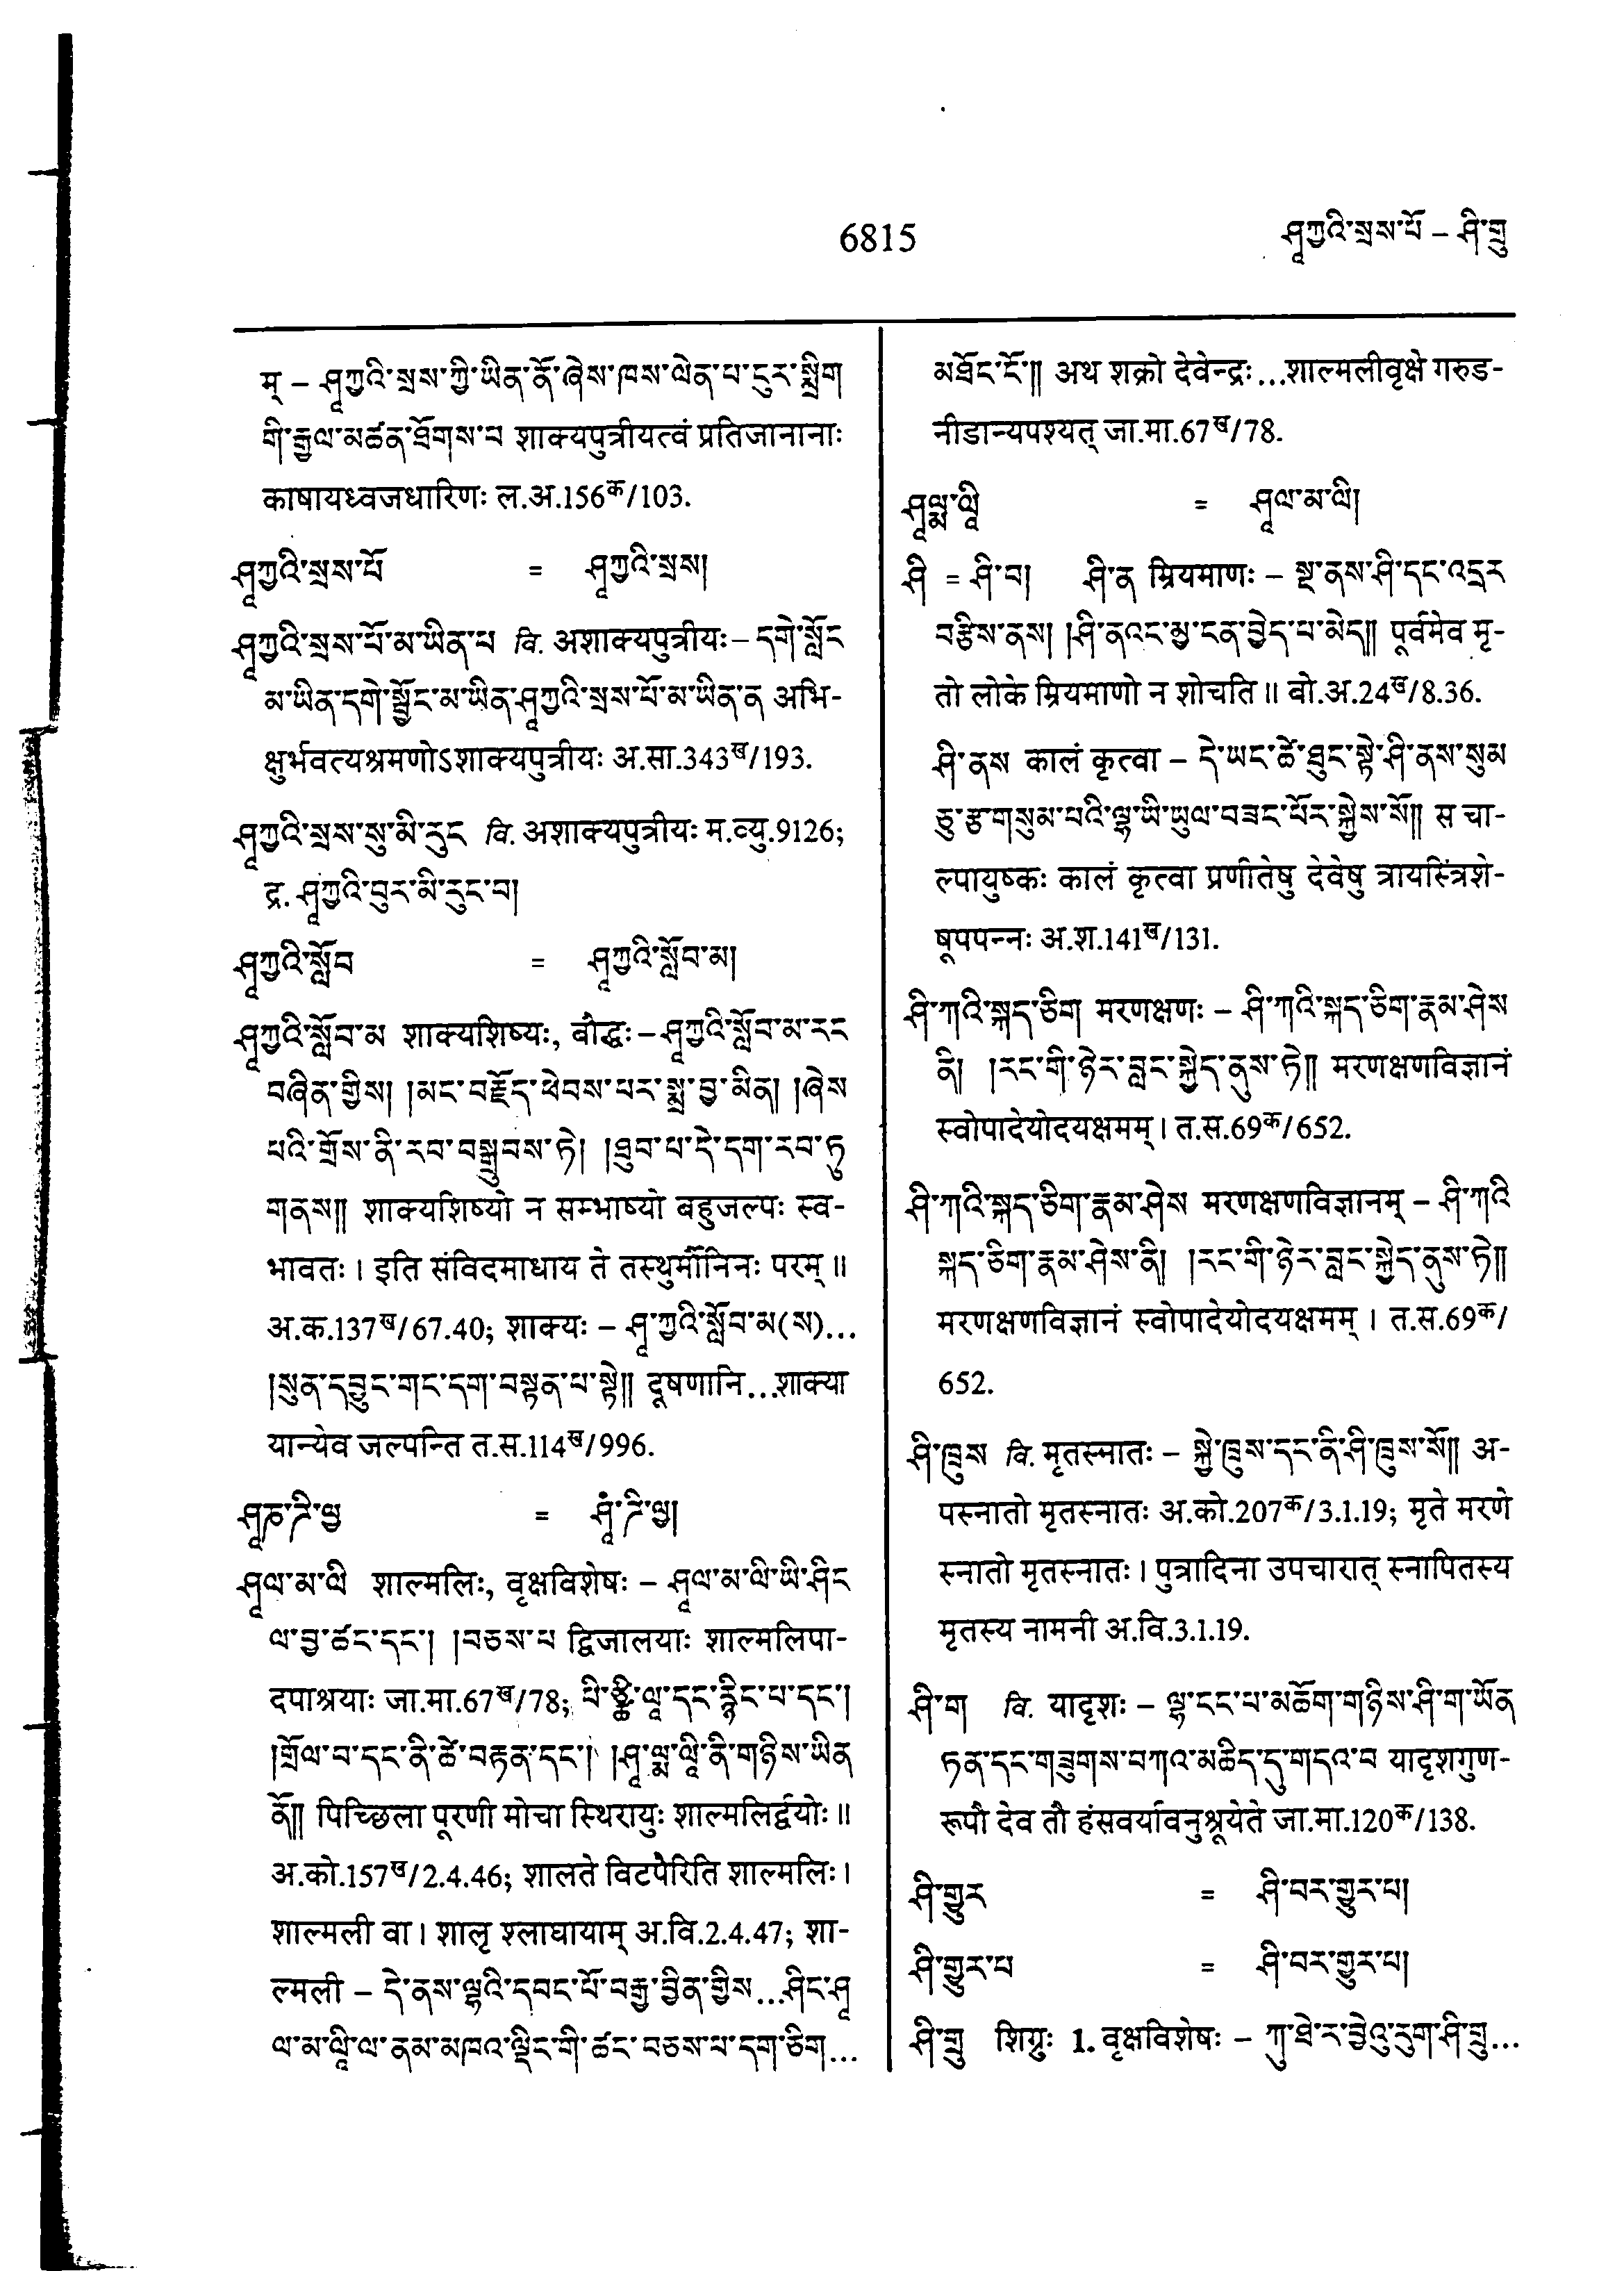 6815
ཤཱཀྱའི་སྲས་པོ – ཤི་གྲུ
म् – ཤཱཀྱའི་སྲས་ཀྱི་ཡིན་ནོ་ཞེས་ཁས་ལེན་པ་ངུར་སྨྲིག
གི་རྒྱལ་མཚན་ཐོགས་པ शाक्यपुत्रीयत्वं प्रतिजानानाः
काषायध्वजधारिणः ल.अ.156क/103.
ཤཱཀྱའི་སྲས་པོ = ཤཱཀྱའི་སྲས།
ཤཱཀྱའི་སྲས་པོ་མ་ཡིན་པ वि. अशाक्यपुत्रीयः – དགེ་སློང
མ་ཡིན་དགེ་སྦྱོང་མ་ཡིན་ཤཱཀྱའི་སྲས་པོ་མ་ཡིན་ན अभि-
क्षुर्भवत्यश्रमणोऽशाक्यपुत्रीयः अ.सा.343ख/193.
ཤཱཀྱའི་སྲས་སུ་མི་རུང वि. अशाक्यपुत्रीयः म.व्यु.9126;
द्र. ཤཱཀྱའི་བུར་མི་རུང་བ།
ཤཱཀྱའི་སློབ = ཤཱཀྱའི་སློབ་མ།
ཤཱཀྱའི་སློབ་མ शाक्यशिष्यः, बौद्धः – ཤཱཀྱའི་སློབ་མ་རང
བཞིན་གྱིས། །མང་བརྗོད་ཕེབས་པར་སྨྲ་བྱ་མིན། །ཞེས
པའི་གྲོས་ནི་རབ་བསྒྲུབས་ཏེ། །ཐུབ་པ་དེ་དག་རབ་ཏུ
གནས།། शाक्यशिष्यो न सम्भाष्यो बहुजल्पः स्व-
भावतः । इति संविदमाधाय ते तस्थुर्मौनिनः परम् ॥
अ.क.137ख/67.40; शाक्यः – ཤཱ་ཀྱའི་སློབ་མ(ས)...
།སུན་དབྱུང་གང་དག་བསྟན་པ་སྟེ།། दूषणानि...शाक्या
यान्येव जल्पन्ति त.स.114ख/996.
ཤཱཎ་ཌི་ལྱ = ཤཱཾ་ཌི་ལྱ།
ཤཱལ་མ་ལི शाल्मलिः, वृक्षविशेषः – ཤཱལ་མ་ལི་ཡི་ཤིང
ལ་བྱ་ཚང་དང་། །བཅས་པ द्विजालयाः शाल्मलिपा-
दपाश्रयाः जा.मा.67ख/78; པི་ཙྪི་ལཱ་དང་རྙིང་པ་དང་།
།གྲོལ་བ་དང་ནི་ཚེ་བརྟན་དང་། །ཤཱ་ལྨ་ལཱི་ནི་གཉིས་ཡིན
ནོ།། पिच्छिला पूरणी मोचा स्थिरायुः शाल्मलिर्द्वयोः ॥
अ.को.157ख/2.4.46; शालते विटपैरिति शाल्मलिः ।
शाल्मली वा । शालृ श्लाघायाम् अ.वि.2.4.47; शा-
ल्मली – དེ་ནས་ལྷའི་དབང་པོ་བརྒྱ་བྱིན་གྱིས...ཤིང་ཤཱ
ལ་མ་ལཱི་ལ་ནམ་མཁའ་ལྡིང་གི་ཚང་བཅས་པ་དག་ཅིག...
མཐོང་ངོ་།། अथ शक्रो देवेन्द्रः...शाल्मलीवृक्षे गरुड-
नीडान्यपश्यत् जा.मा.67ख/78.
ཤཱལྨ་ལཱི = ཤཱལ་མ་ལི།
ཤི = ཤི་བ། ཤི་ན म्रियमाणः – སྔ་ནས་ཤི་དང་འདྲར
བརྩིས་ནས། །ཤི་ནའང་མྱ་ངན་བྱེད་པ་མེད།། पूर्वमेव मृ-
तो लोके म्रियमाणो न शोचति ॥ बो.अ.24ख/8.36.
ཤི་ནས कालं कृत्वा – དེ་ཡང་ཚེ་ཐུང་སྟེ་ཤི་ནས་སུམ
ཅུ་རྩ་གསུམ་པའི་ལྷ་ཡི་ཡུལ་བཟང་པོར་སྐྱེས་སོ།། स चा-
ल्पायुष्कः कालं कृत्वा प्रणीतेषु देवेषु त्रायस्त्रिंशे-
षूपपन्नः अ.श.141ख/131.
ཤི་ཀའི་སྐད་ཅིག मरणक्षणः – ཤི་ཀའི་སྐད་ཅིག་རྣམ་ཤེས
ནི། །རང་གི་ཉེར་བླང་སྐྱེད་ནུས་ཏེ།། मरणक्षणविज्ञानं
स्वोपादेयोदयक्षमम् । त.स.69क/652.
ཤི་ཀའི་སྐད་ཅིག་རྣམ་ཤེས मरणक्षणविज्ञानम् – ཤི་ཀའི
སྐད་ཅིག་རྣམ་ཤེས་ནི། །རང་གི་ཉེར་བླང་སྐྱེད་ནུས་ཏེ།།
मरणक्षणविज्ञानं स्वोपादेयोदयक्षमम् । त.स.69क/
652.
ཤི་ཁྲུས वि. मृतस्नातः – སྐྱེ་ཁྲུས་དང་ནི་ཤི་ཁྲུས་སོ།། अ-
पस्नातो मृतस्नातः अ.को.207क/3.1.19; मृते मरणे
स्नातो मृतस्नातः । पुत्रादिना उपचारात् स्नापितस्य
मृतस्य नामनी अ.वि.3.1.19.
ཤི་ག वि. यादृशः – ལྷ་ངང་པ་མཆོག་གཉིས་ཤི་ག་ཡོན
ཏན་དང་གཟུགས་བཀའ་མཆིད་དུ་གདའ་བ यादृशगुण-
रूपौ देव तौ हंसवर्यावनुश्रूयेते जा.मा.120क/138.
ཤི་གྱུར = ཤི་བར་གྱུར་པ།
ཤི་གྱུར་པ = ཤི་བར་གྱུར་པ།
ཤི་གྲུ शिग्रुः 1. वृक्षविशेषः – ཀུ་ཐེ་ར་བྱེའུ་རུག་ཤི་གྲུ...